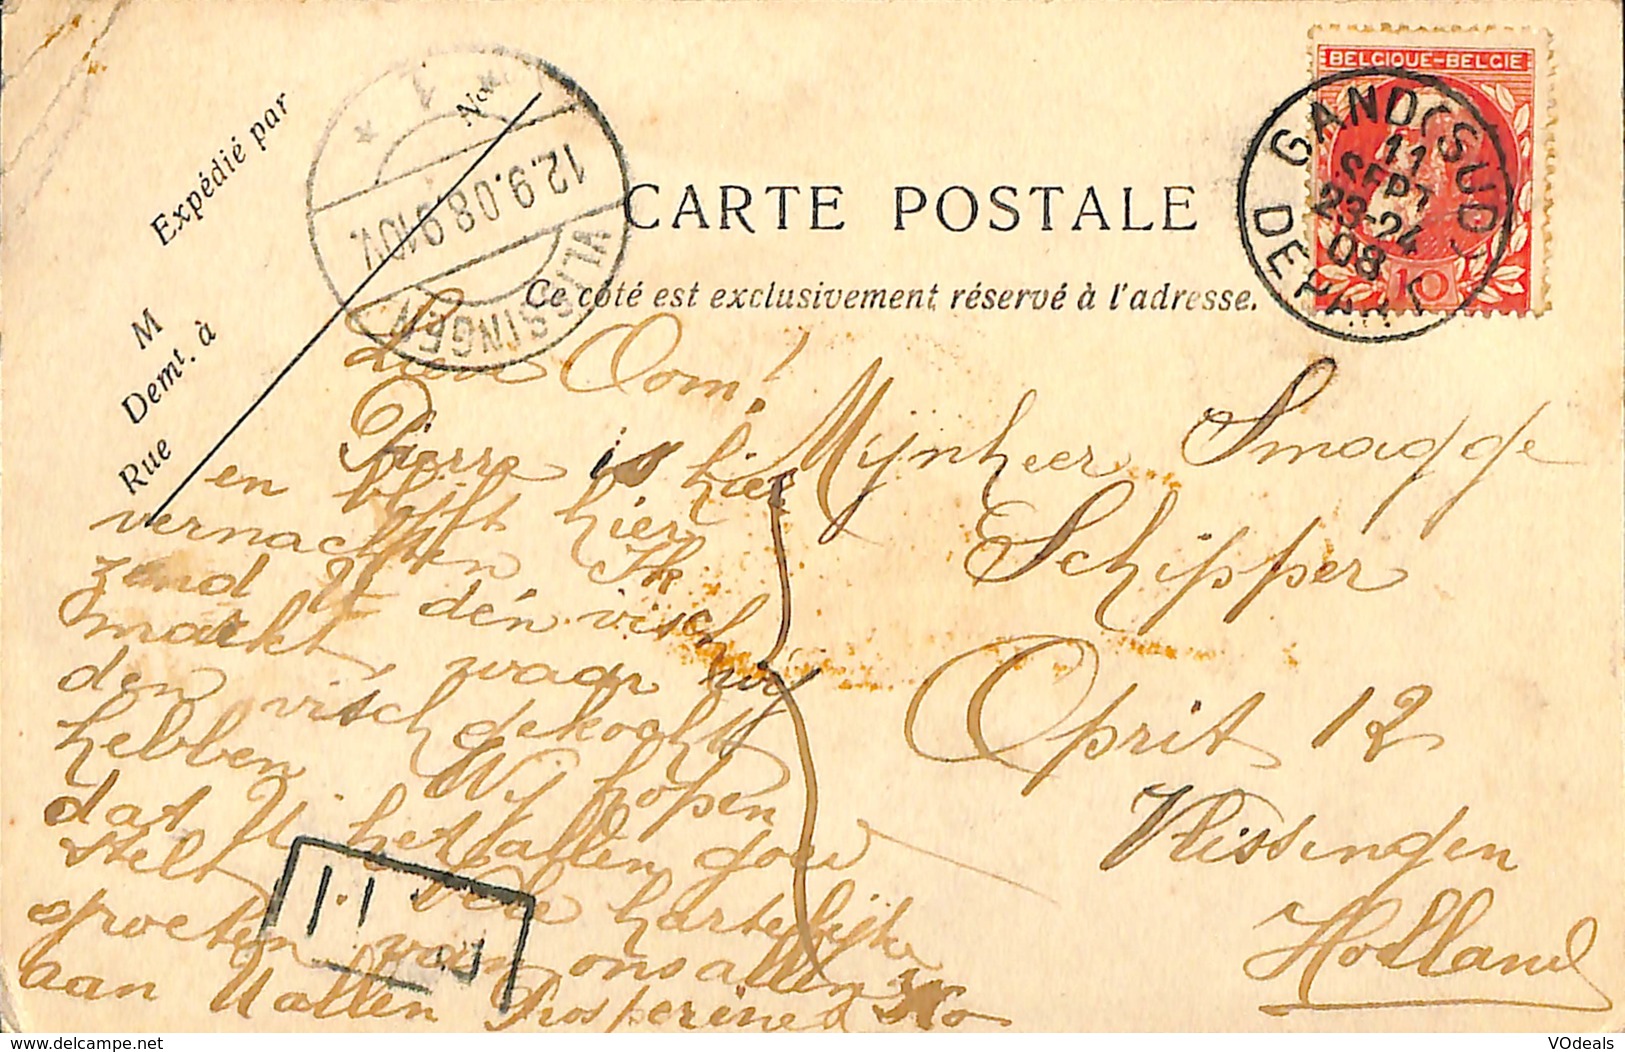 BELGIQUE-BELGIE
10
GAND (SUD)
11
SEPT
23-24
08
DEPART
VLISSINGEN
12.9.08.9-10V.
1
CARTE POSTALE
Ce côté est exclusivement réservé à l'adresse.
Expédié par
M
Demt. à
Rue
No
Lieve Oom!
Pierre is hier
en blijft hier
vernachten Ik
zend U den visch
markt, waar wij
den visch gekocht
hebben Wij hopen
dat U het allen goed
stelt Vele hartelijke
groeten van ons allen
aan U allen Prosperine
Mijnheer Smagge
Schipper
Oprit 12
Vlissingen
Holland
www.delcampe.net
VOdeals